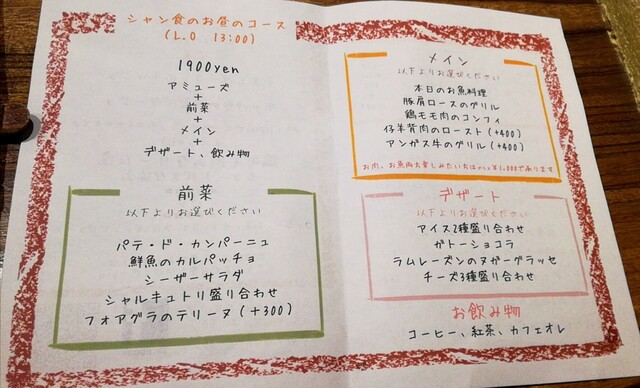 シャン食のお昼のコース
(L.O 13:00)
1900yen
アミューズ
+
前菜
+
メイン
+
デザート、飲み物
前菜
以下よりお選びください
パテ・ド・カンパーニュ
鮮魚のカルパッチョ
シーザーサラダ
シャルキュトリ盛り合わせ
フォアグラのテリーヌ(+300)
メイン
以下よりお選びください
本日のお魚料理
豚肩ロースのグリル
鶏モモ肉のコンフィ
仔羊背肉のロースト(+400)
アンガス牛のグリル(+400)
お肉、お魚両方楽しみたい方は ¥1,000で承ります
デザート
以下よりお選びください
アイス2種盛り合わせ
ガトーショコラ
ラムレーズンのヌガーグラッセ
チーズ3種盛り合わせ
お飲み物
コーヒー、紅茶、カフェオレ